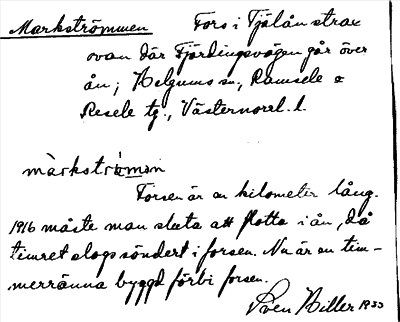 Markströmmen Fors i Tjälån strax
ovan där Fjärdingsvägen går över
ån; Helgums sn, Ramsele o
Resele tg., Västernorrl. l.
märkströmən
Forsen är en kilometer lång.
1916 måste man sluta att flotta i ån, då
timret slogs söndert i forsen. Nu är en tim-
merränna byggd förbi forsen.
Sven Hiller 1933